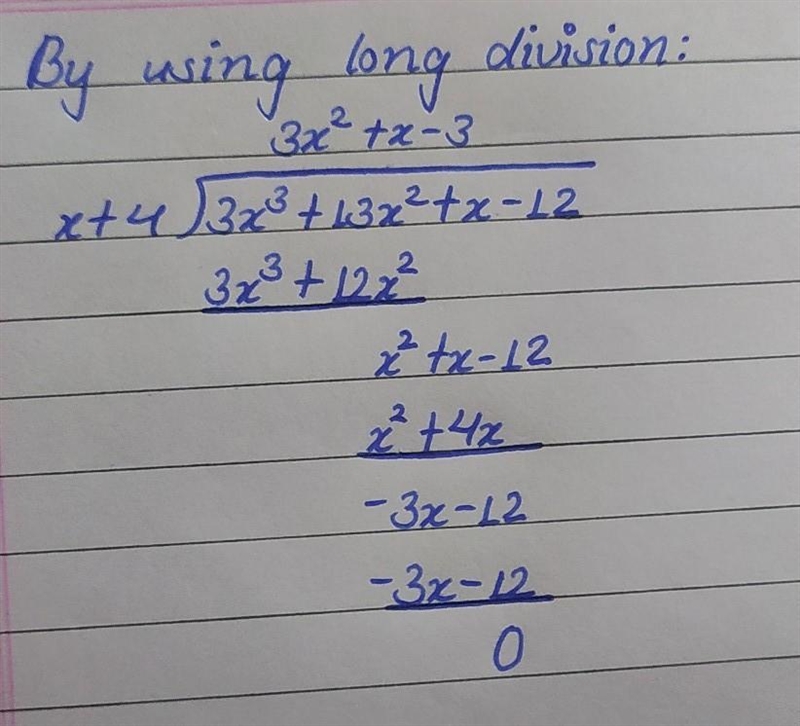 By using long division:
3x² + x - 3
x + 4 ) 3x³ + 13x² + x - 12
3x³ + 12x²
x² + x - 12
x² + 4x
-3x - 12
-3x - 12
0